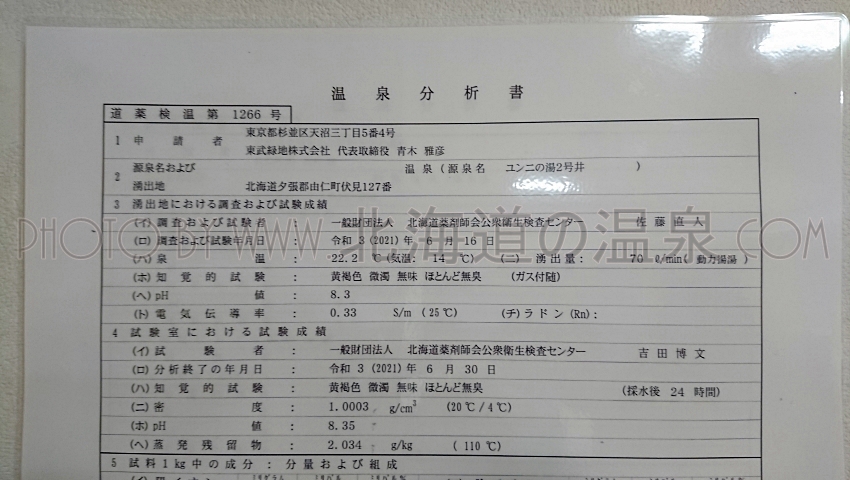 温泉分析書
道薬検温第 1266 号
1 申請者 東京都杉並区天沼三丁目5番4号
東武緑地株式会社 代表取締役 青木 雅彦
2 源泉名および 温泉(源泉名 ユンニの湯2号井 )
湧出地 北海道夕張郡由仁町伏見127番
3 湧出地における調査および試験成績
(イ)調査および試験者 : 一般財団法人 北海道薬剤師会公衆衛生検査センター 佐藤直人
(ロ)調査および試験年月日 : 令和 3 (2021) 年 6 月 16 日
(ハ)泉温 : 22.2 ℃(気温: 14 ℃) (ニ) 湧出量: 70 ℓ/min( 動力揚湯 )
(ホ)知覚的試験 : 黄褐色 微濁 無味 ほとんど無臭 (ガス付随)
(ヘ)pH値 : 8.3
(ト)電気伝導率 : 0.33 S/m (25℃) (チ)ラドン(Rn):
4 試験室における試験成績
(イ)試験者 : 一般財団法人 北海道薬剤師会公衆衛生検査センター 吉田博文
(ロ)分析終了の年月日 : 令和 3 (2021) 年 6 月 30 日
(ハ)知覚的試験 : 黄褐色 微濁 無味 ほとんど無臭 (採水後 24 時間)
(ニ)密度 : 1.0003 g/cm³ (20℃/4℃)
(ホ)pH値 : 8.35
(ヘ)蒸発残留物 : 2.034 g/kg (110℃)
5 試料1kg中の成分:分量および組成
PHOTO BY WWW.北海道の温泉.COM